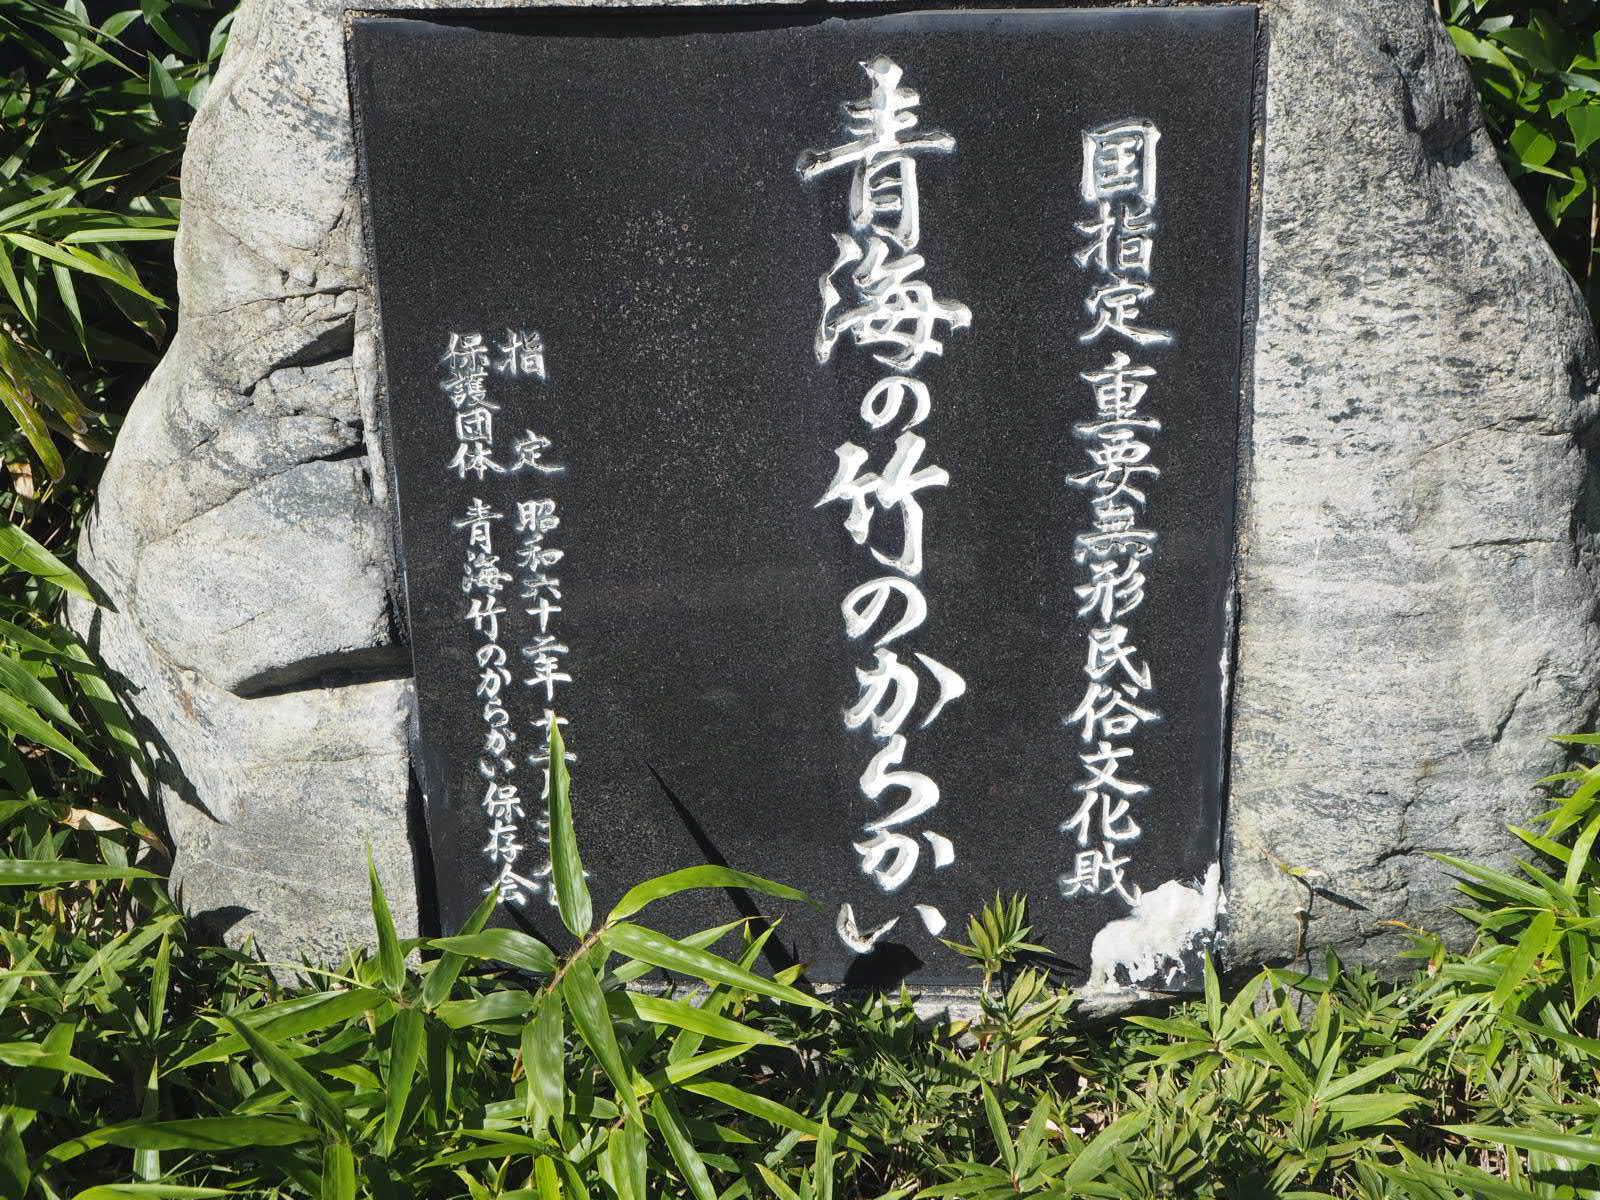 国指定重要無形民俗文化財
青海の竹のからかい
指定 昭和六十二年十二月
保護団体 青海竹のからかい保存会